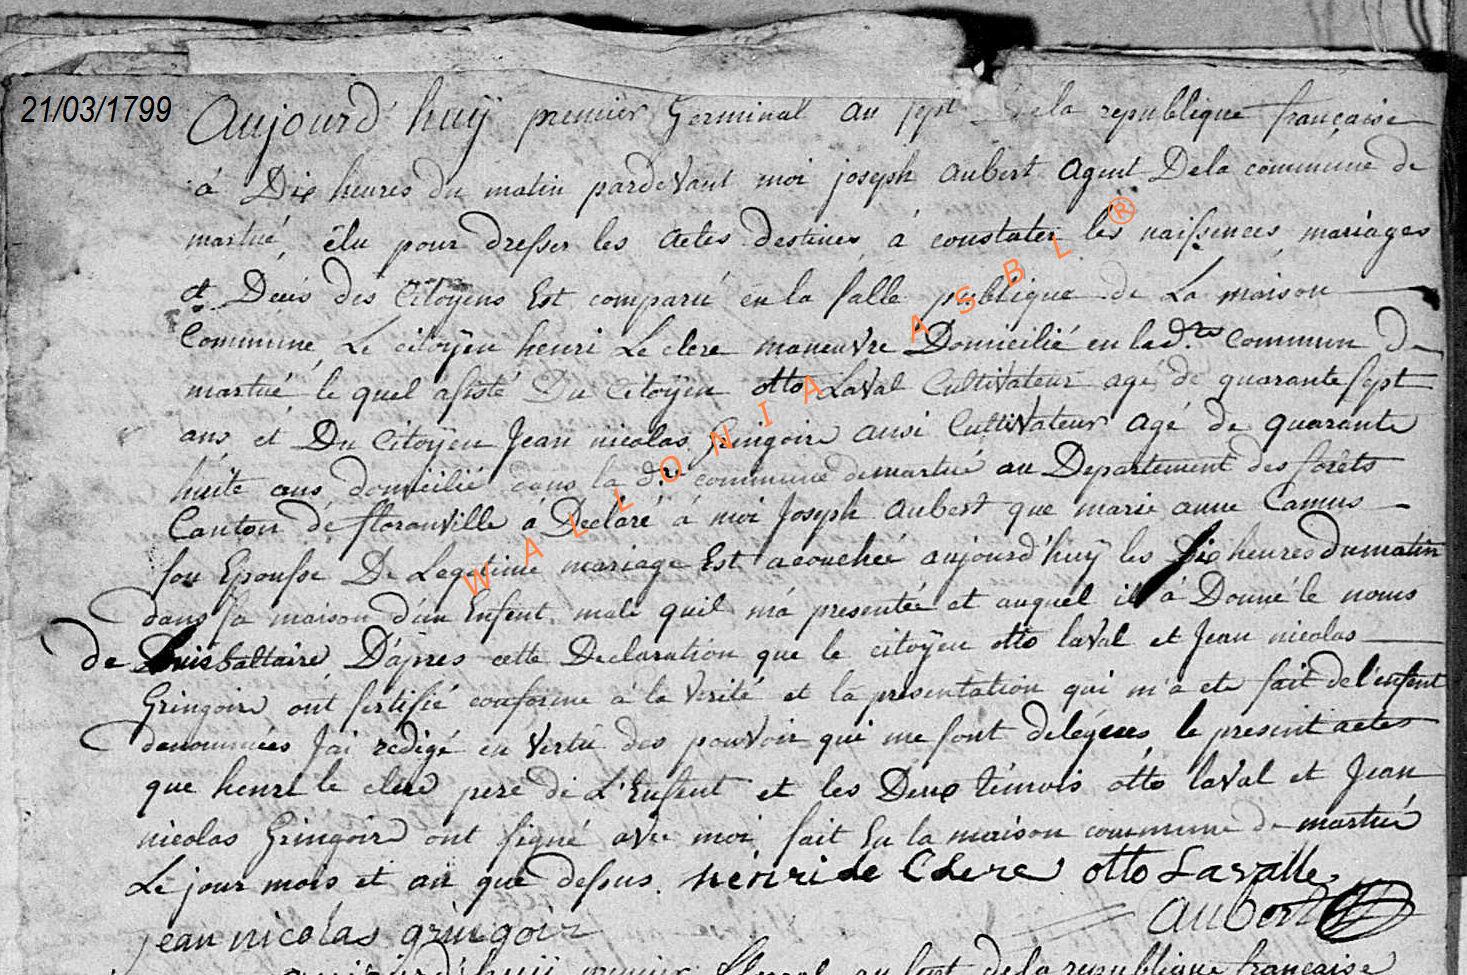 21/03/1799
Aujourd'huÿ premier Germinal an sept dela republique française
á Dix heures du matin pardevant moi joseph aubert agent Dela commune de
martué, élu pour dresser les actes destines á constater lés naissences, mariages
et Deces des Citoÿens Est comparu en la salle publique de La maison
Commune, Le citoÿen henri Le clere maneuvre Domicilié en lad.re commun De
martué le quel asisté Du Citoÿen otto Laval Cultivateur age de quarante sept
ans, et Du Citoÿen Jean nicolas Gringoire ausi Cultivateur agé de quarante
huite ans domicilié dans la d.re commune demartué au Departement des forets
Canton de floranville á Declaré á moi Joseph aubert que marie anne Camus
son Epousse De Legetime mariage Est acouchée aujourd'huÿ les Dix heures Dumatin
dans sa maison d'un Enfent male quil m'a presentée et auquel il á Donné le noms
de Louis baltaire D'apres cette Declaration que le citoÿen otto laval et Jean nicolas
Gringoire ont sertifié conforme á la verité et la presentation qui m'a ete fait de l'enfent
denommées J'ai redigé en vertu des pouvoir qui me sont delégues le present actes
que henri le clere pere de L'Enfent et les Deux témois otto laval et Jean
nicolas Gringoire ont signé avec moi, fait En la maison commune de martué
Le jour mois et an que dessus. henri le Clere otto Lavalle
aubert
jean nicolas gringoir
aujourd'huÿ premier floreal an sept de la republique francaise
WALLONIA ASBL ®